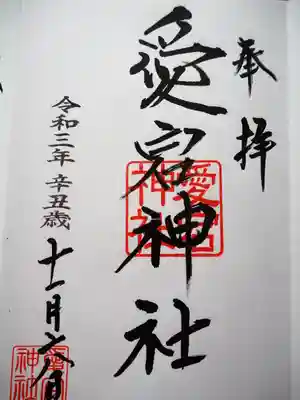 奉拝
愛宕神社
令和三年 辛丑歳
十一月六日
愛宕神社
愛宕神社